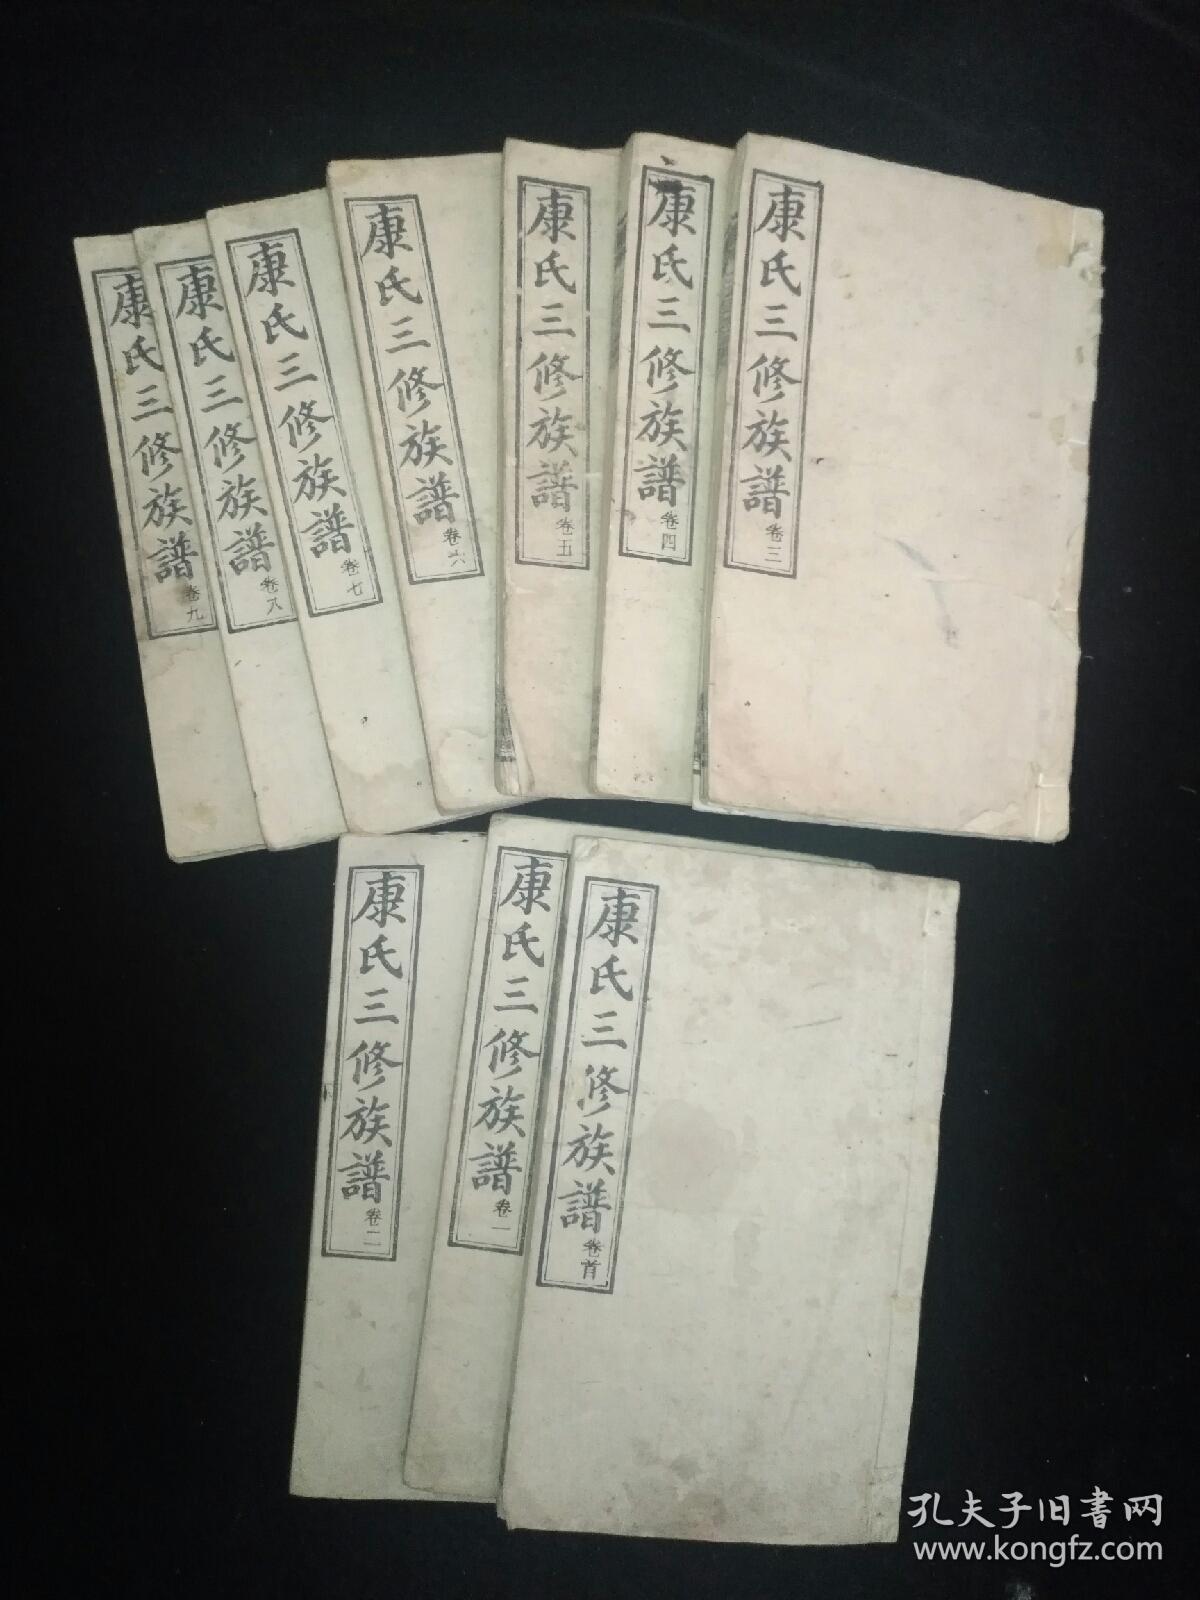 康氏三修族譜 卷九
康氏三修族譜 卷八
康氏三修族譜 卷七
康氏三修族譜 卷六
康氏三修族譜 卷五
康氏三修族譜 卷四
康氏三修族譜 卷三
康氏三修族譜 卷二
康氏三修族譜 卷一
康氏三修族譜 卷首
孔夫子旧書网
www.kongfz.com